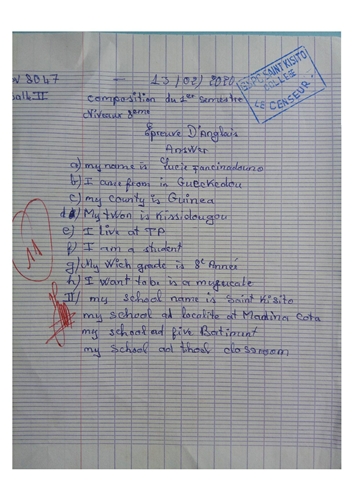 N° 8047 — 13/02/2020
Salle II
GSPC SAINT KISITO
COLLEGE
LE CENSEUR
Composition du 1er Semestre
Niveaux 8ème
Epreuve D'Anglais
Answer
a) my name is Lucie
b) I came from is Gueckedou
c) my county is Guinea
d) My twon is Kissidougou
e) I live at TP
f) I am a student
g) My Wich grade is 8e Année
h) I want to be is a
II) my school name is Saint Kisito
my school ad localite at Madina Cota
my school ad five Batiment
my school ad classroom
11